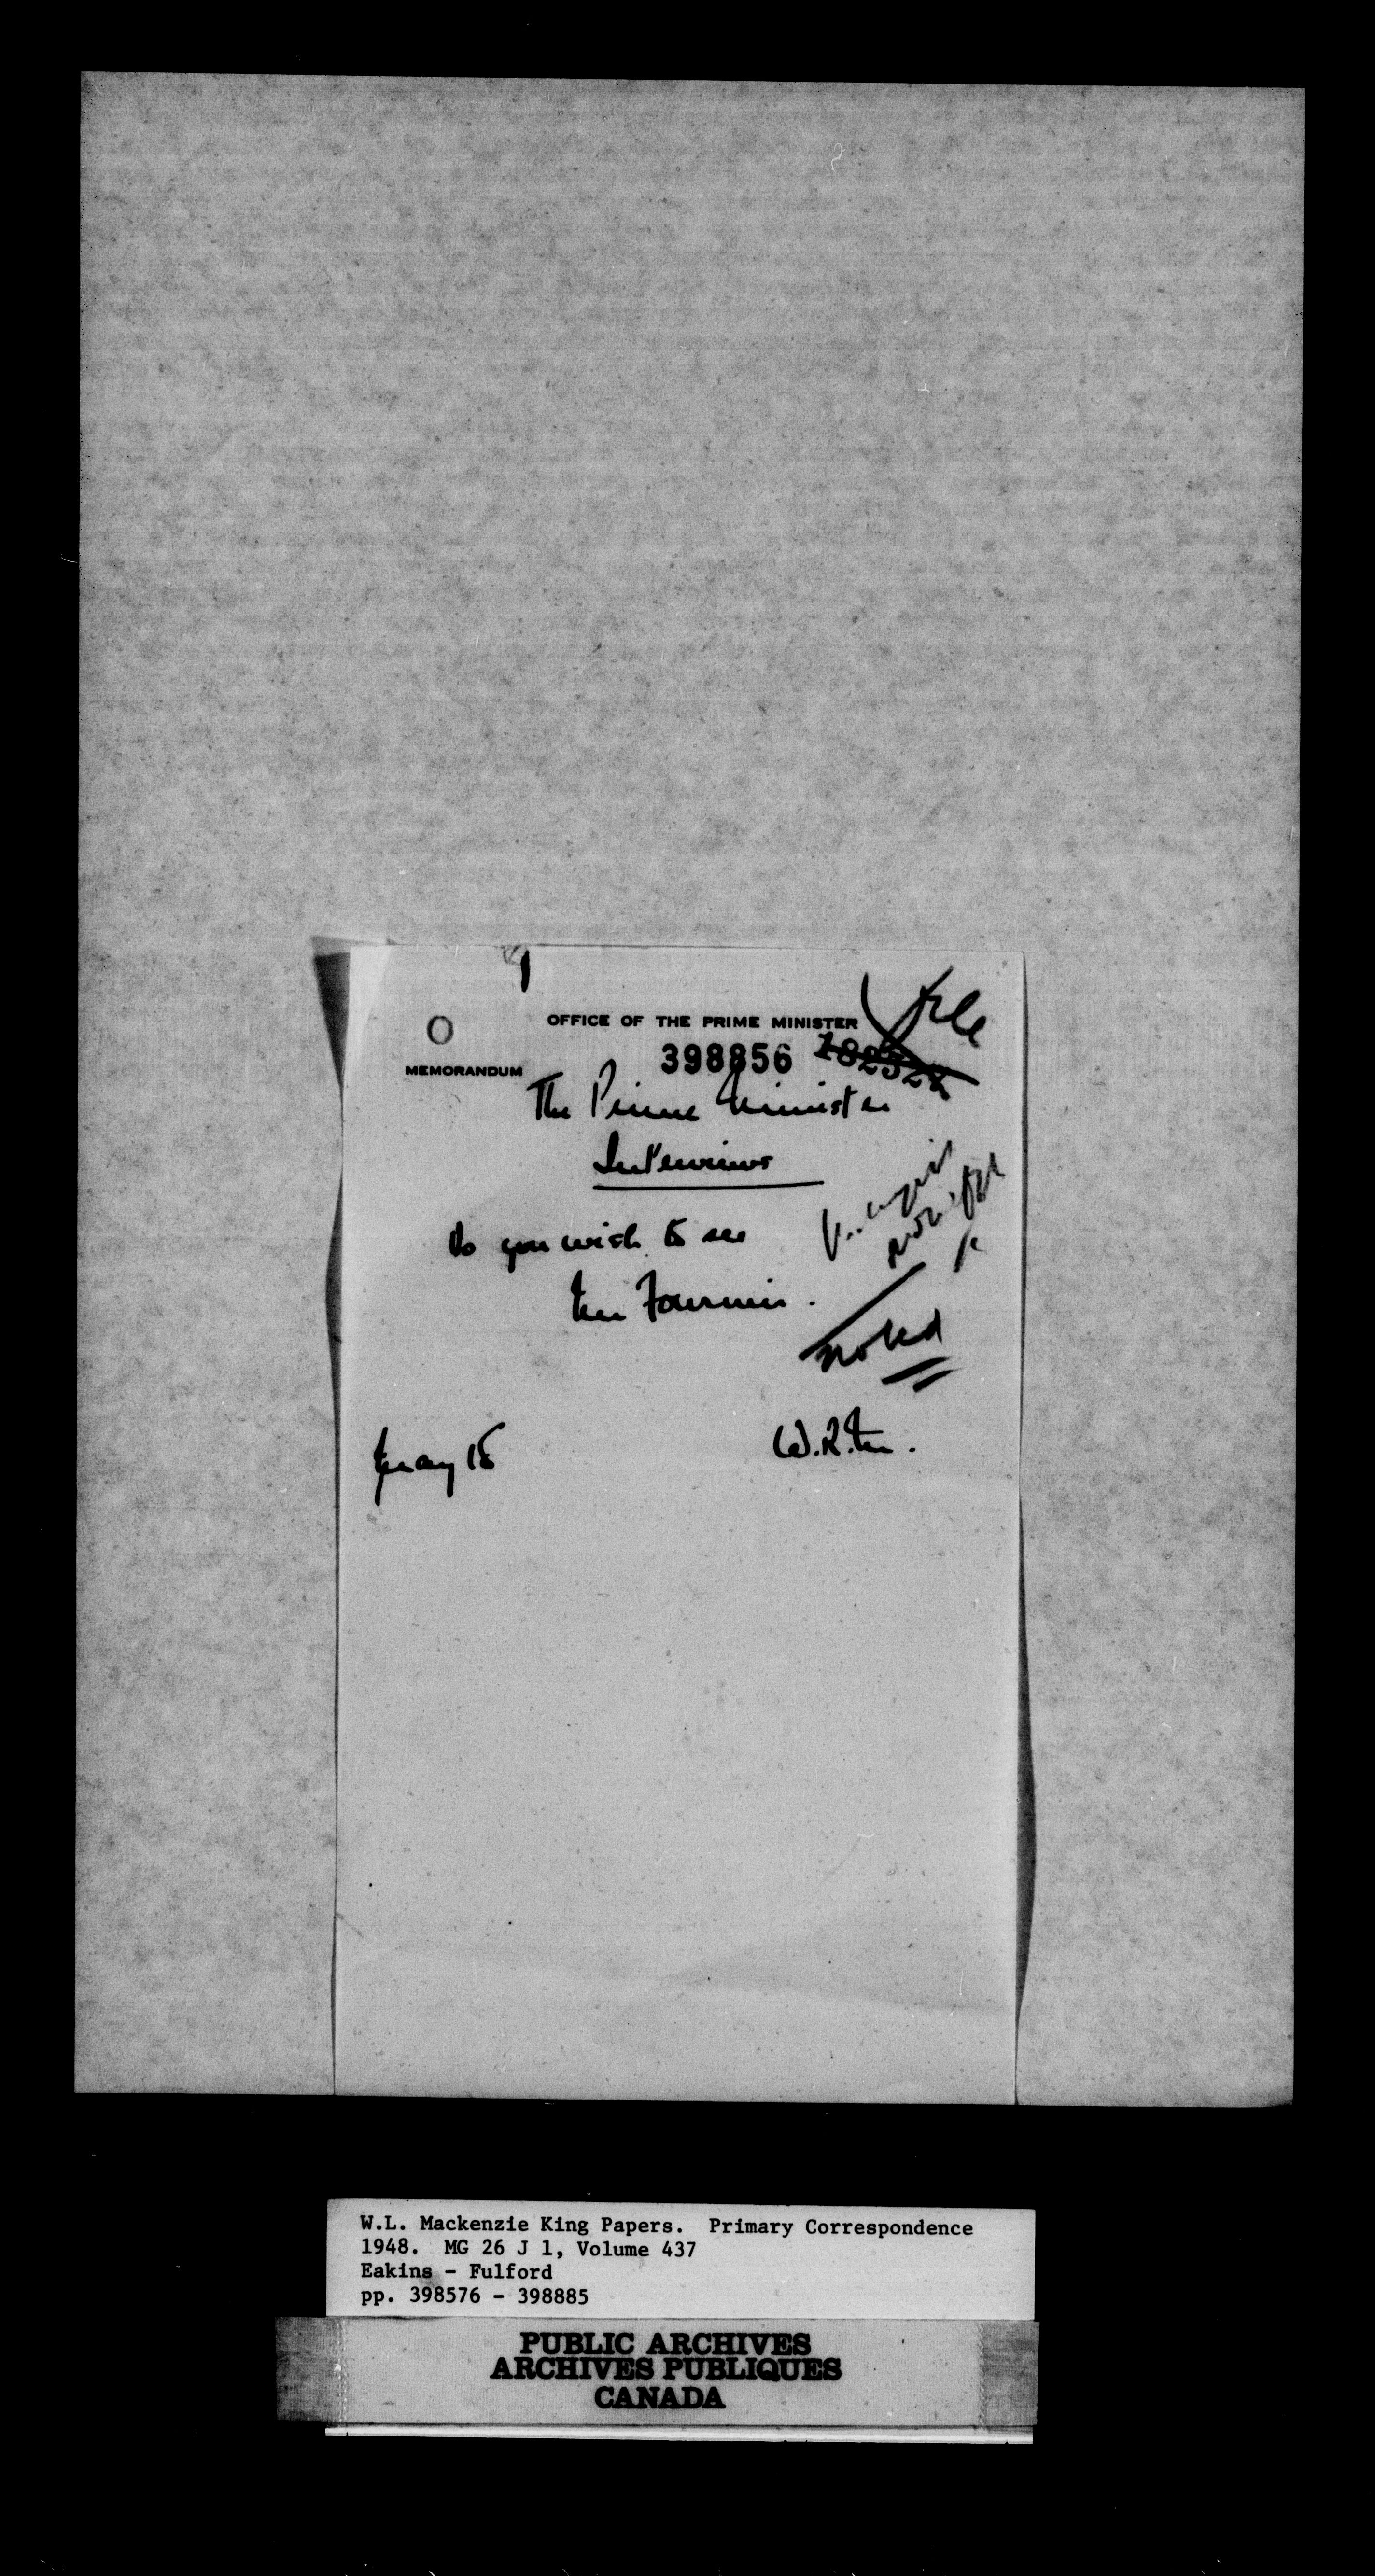 file
OFFICE OF THE PRIME MINISTER
398856 182528
MEMORANDUM
The Prime Minister
Interviews
Do you wish to see
Mr Fournier.
noted
May 18
W.R.M.
W.L. Mackenzie King Papers. Primary Correspondence
1948. MG 26 J 1, Volume 437
Eakins - Fulford
pp. 398576 - 398885
PUBLIC ARCHIVES
ARCHIVES PUBLIQUES
CANADA